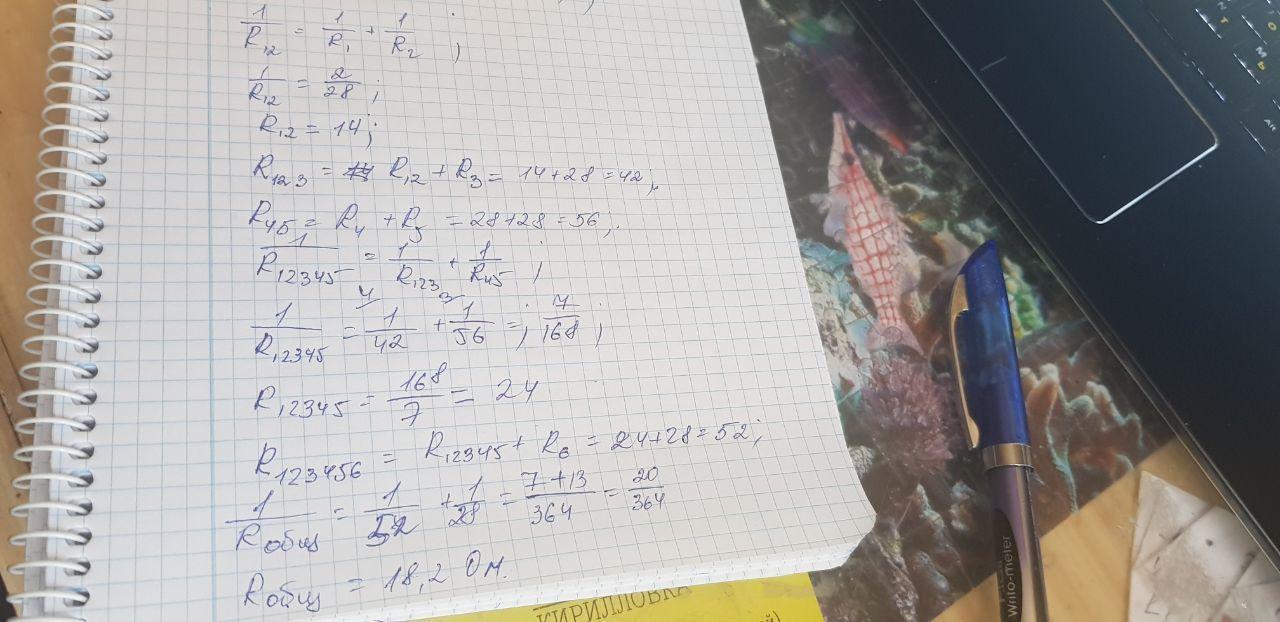 1/R12 = 1/R1 + 1/R2 ;
1/R12 = 2/28 ;
R12 = 14;
R123 = R12 + R3 = 14+28=42;
R45 = R4 + R5 = 28+28=56;
1/R12345 = 1/R123 + 1/R45 ;
4 3
1/R12345 = 1/42 + 1/56 =; 7/168 ;
R12345 = 168/7 = 24
R123456 = R12345 + R6 = 24+28=52;
1/Rобщ = 1/52 + 1/28 = 7+13/364 = 20/364
Rобщ = 18,2 Ом.
КИРИЛЛОВКА
Write-o-meter